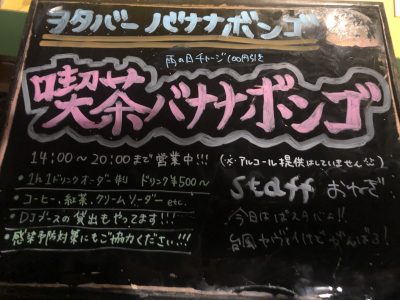 ヲタバー バナナボンゴ
雨の日チャージ100円引き
喫茶バナナボンゴ
14:00〜20:00まで営業中!!!
(※アルコール提供はしていません
・1h1ドリンクオーダー制 ドリンク¥500〜
・コーヒー、紅茶、クリームソーダー etc.
・DJブースの貸出もやってます!!!
・感染予防対策にもご協力ください!!!
staff おねぎ
今日は
台風ヤヴァイけどがんばる!